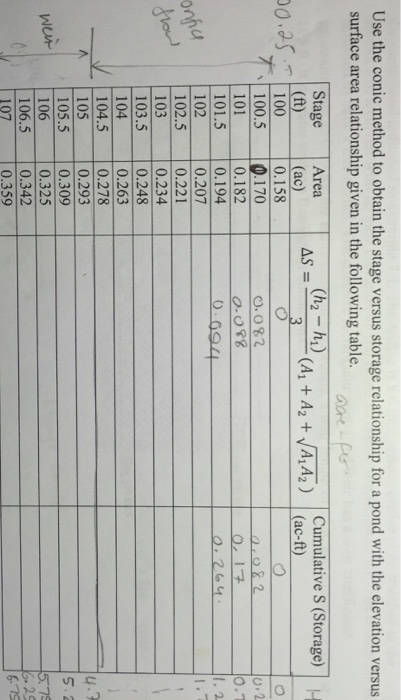 Use the conic method to obtain the stage versus storage relationship for a pond with the elevation versus
surface area relationship given in the following table.
Stage (ft) Area (ac) ΔS = (h₂ − h₁)/3 (A₁ + A₂ + √A₁A₂) Cumulative S (Storage) (ac-ft)
100 0.158 0 0
100.5 0.170 0.082 0.082
101 0.182 0.088 0.17
101.5 0.194 0.094 0.264
102 0.207
102.5 0.221
103 0.234
103.5 0.248
104 0.263
104.5 0.278
105 0.293
105.5 0.309
106 0.325
106.5 0.342
107 0.359
weir